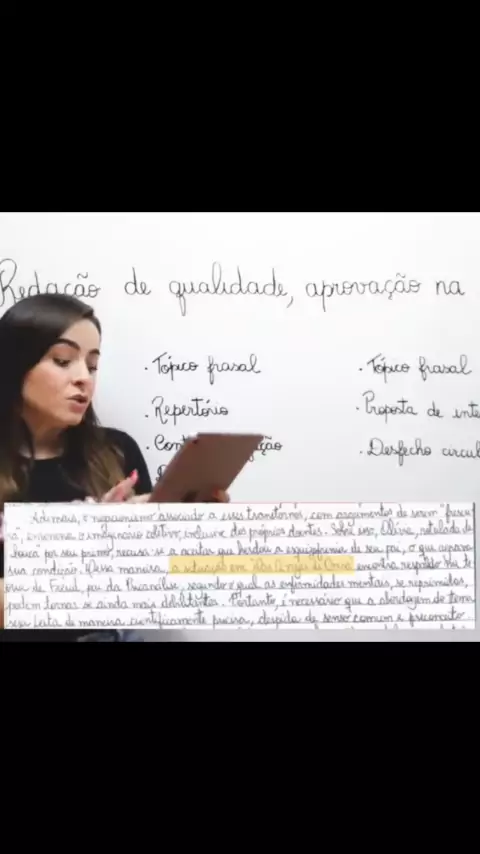 Redação de qualidade, aprovação na
. Tópico frasal
. Tópico frasal
. Repertório
. Proposta de inte
. Cont ação
. Desfecho circul
Ademais, o negacionismo associado a esses transtornos, com argumentos de serem "frescu
ra, envenena o imaginário coletivo, inclusive dos próprios doentes. Sobre isso, Olávia, rotulada de
louca por seu primo, recusa-se a aceitar que herdou a esquizofrenia de seu pai, o que
sua condição. Dessa maneira, a situação em "Nas
encontra respaldo na te
oria de Freud, pai da Psicanálise, segundo o qual as enfermidades mentais, se reprimidas,
podem tornar-se ainda mais debilitantes. Portanto, é necessário que a abordagem do tema
seja feita de maneira cientificamente precisa, despida de senso comum e preconceito.